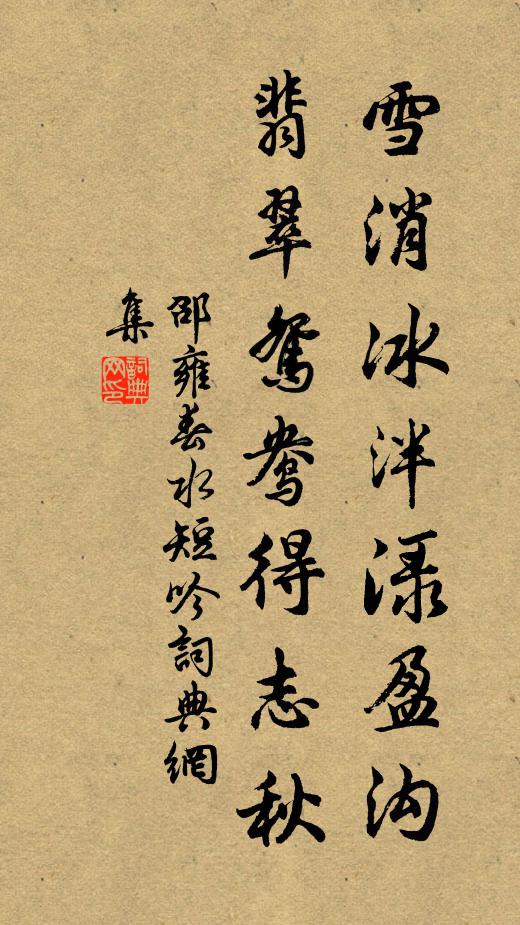 雪消冰泮渌盈沟
翡翠鸳鸯得志秋
邵雍春水短吟詞典網
集
詞典网印